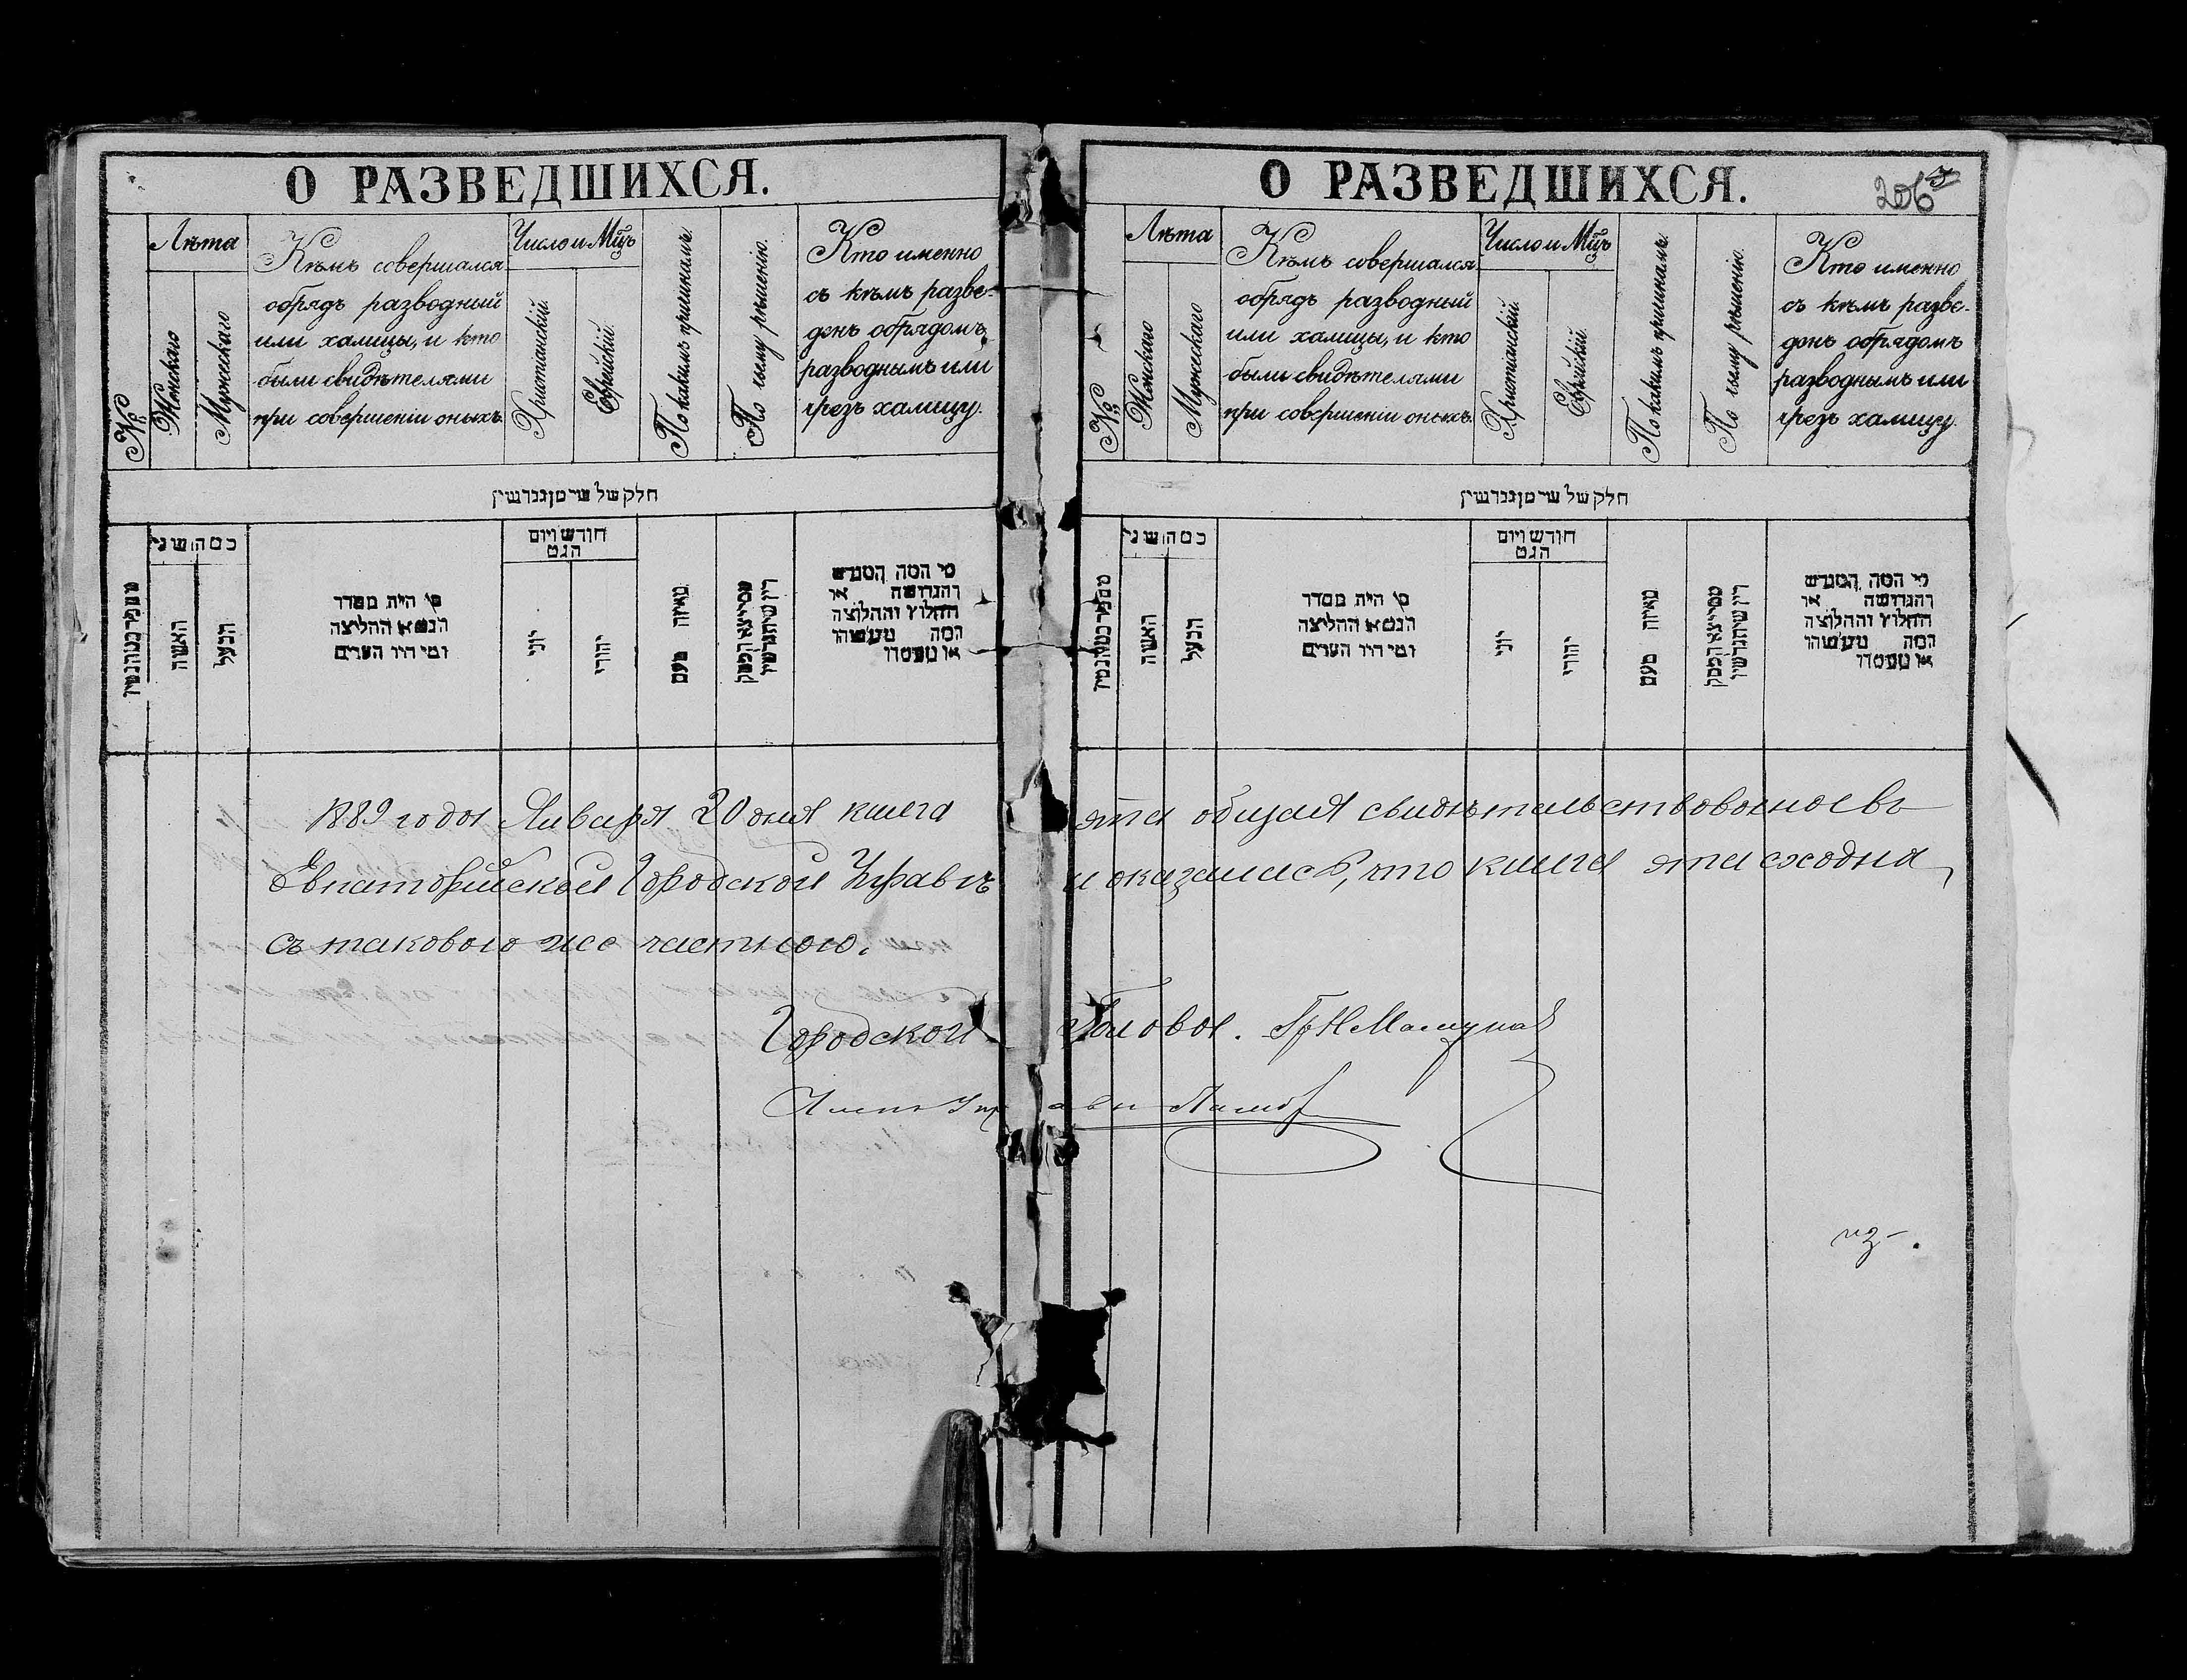 О РАЗВЕДШИХСЯ.
№
Лѣта
Женскаго
Мужескаго
Кѣмъ совершался
обрядъ разводный
или халицы, и кто
были свидѣтелями
при совершеніи оныхъ.
Число и Мцъ
Христіанскій
Еврейскій
По какимъ причинамъ.
По чьему рѣшенію.
Кто именно
съ кѣмъ разве-
денъ обрядомъ
разводнымъ или
чрезъ халицу.
חלק של שטן גגרשין
כמה שני
האשה
הבעל
מי היה מסדר
הגט או החליצה
ומי היו העדים
חודש ויום
הגט
יוני
יהודי
מאיזה טעם
מי המה המגרש
והגרושה או
החלוץ והחלוצה
О РАЗВЕДШИХСЯ.
206
№
Лѣта
Женскаго
Мужескаго
Кѣмъ совершался
обрядъ разводный
или халицы, и кто
были свидѣтелями
при совершеніи оныхъ.
Число и Мцъ
Христіанскій
Еврейскій
По какимъ причинамъ.
По чьему рѣшенію.
Кто именно
съ кѣмъ разве-
денъ обрядомъ
разводнымъ или
чрезъ халицу.
חלק של שטן גגרשין
כמה שני
האשה
הבעל
מי היה מסדר
הגט או החליצה
ומי היו העדים
חודש ויום
הגט
יוני
יהודי
מאיזה טעם
מי המה המגרש
והגרושה או
החלוץ והחלוצה
1889 года Января 20 дня книга эта общая свидѣтельствована въ
Евпаторійской Городской Управѣ и оказалась, что книга эта сходна
съ таковою же частною.
Городской Голова.
Членъ Управы